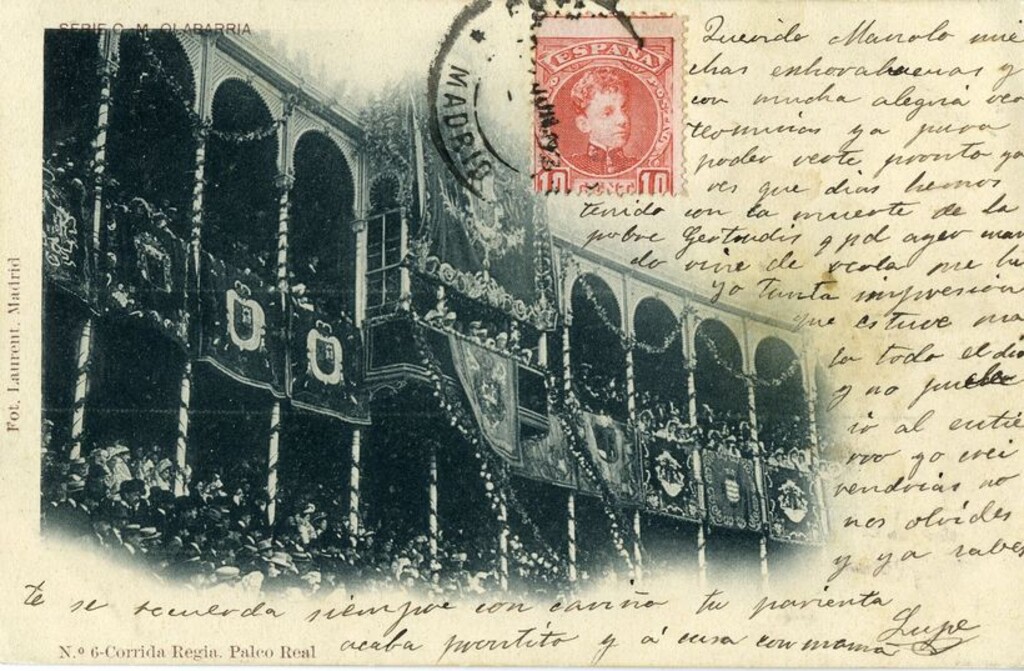 SERIE C. M. OLABARRIA
MADRID
JUN
ESPAÑA
10 10
Querido Manolo mu
chas enhorabuenas y
con mucha alegria veo
terminias ya para
poder verte pronto ya
ves que dias hemos
tenido con la muerte de la
pobre Gertrudis q.p.d ayer
do vine de verla me
yo tanta impresion
que estuve ma
la todo el dia
y no pude
ir al entie
rro yo crei
vendrias no
nos olvides
y ya sabes
te se recuerda siempre con cariño tu parienta
Lupe
acaba prontito y á casa con mamá
Fot. Laurent. Madrid
N.º 6-Corrida Regia. Palco Real